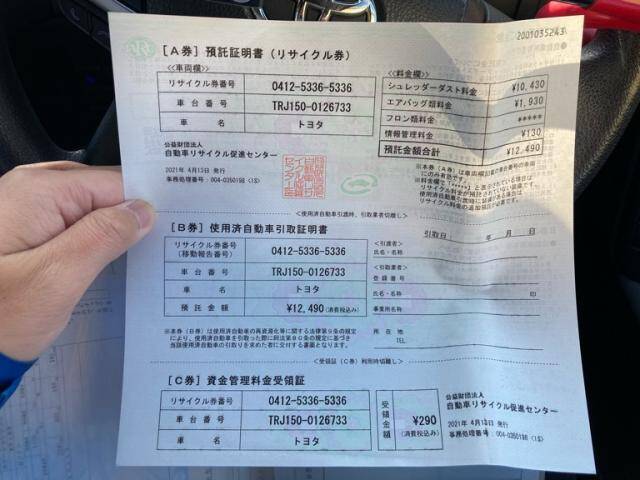 2001035243
[A券] 預託証明書 (リサイクル券)
≪車両欄≫
リサイクル券番号 0412-5336-5336
車台番号 TRJ150-0126733
車名 トヨタ
≪料金欄≫
シュレッダーダスト料金 ¥10,430
エアバッグ類料金 ¥1,930
フロン類料金 *****
情報管理料金 ¥130
預託金額合計 ¥12,490
公益財団法人
自動車リサイクル促進センター
2021年 4月13日 発行
事務処理番号 : 004-0350198 (1S)
<使用済自動車引渡時、引取業者切離し>
[B券] 使用済自動車引取証明書
引取日 年 月 日
リサイクル券番号
(移動報告番号) 0412-5336-5336
車台番号 TRJ150-0126733
車名 トヨタ
預託金額 ¥12,490 (消費税込み)
≪引渡者≫
氏名・名称
≪引取業者≫
登録番号
氏名・名称 印
事業所名称
所在地
TEL
※本券(B券)は使用済自動車の再資源化等に関する法律第9条の規定
により、使用済自動車を引取った際に同法第80条の規定に基づき
当該使用済自動車の引取りを求めた者に交付する書面となります。
<受領証(C券)利用時切離し>
[C券] 資金管理料金受領証
リサイクル券番号 0412-5336-5336
車台番号 TRJ150-0126733
車名 トヨタ
受領金額 ¥290
(消費税込み)
公益財団法人
自動車リサイクル促進センター
2021年 4月13日 発行
事務処理番号 : 004-0350198 (1S)